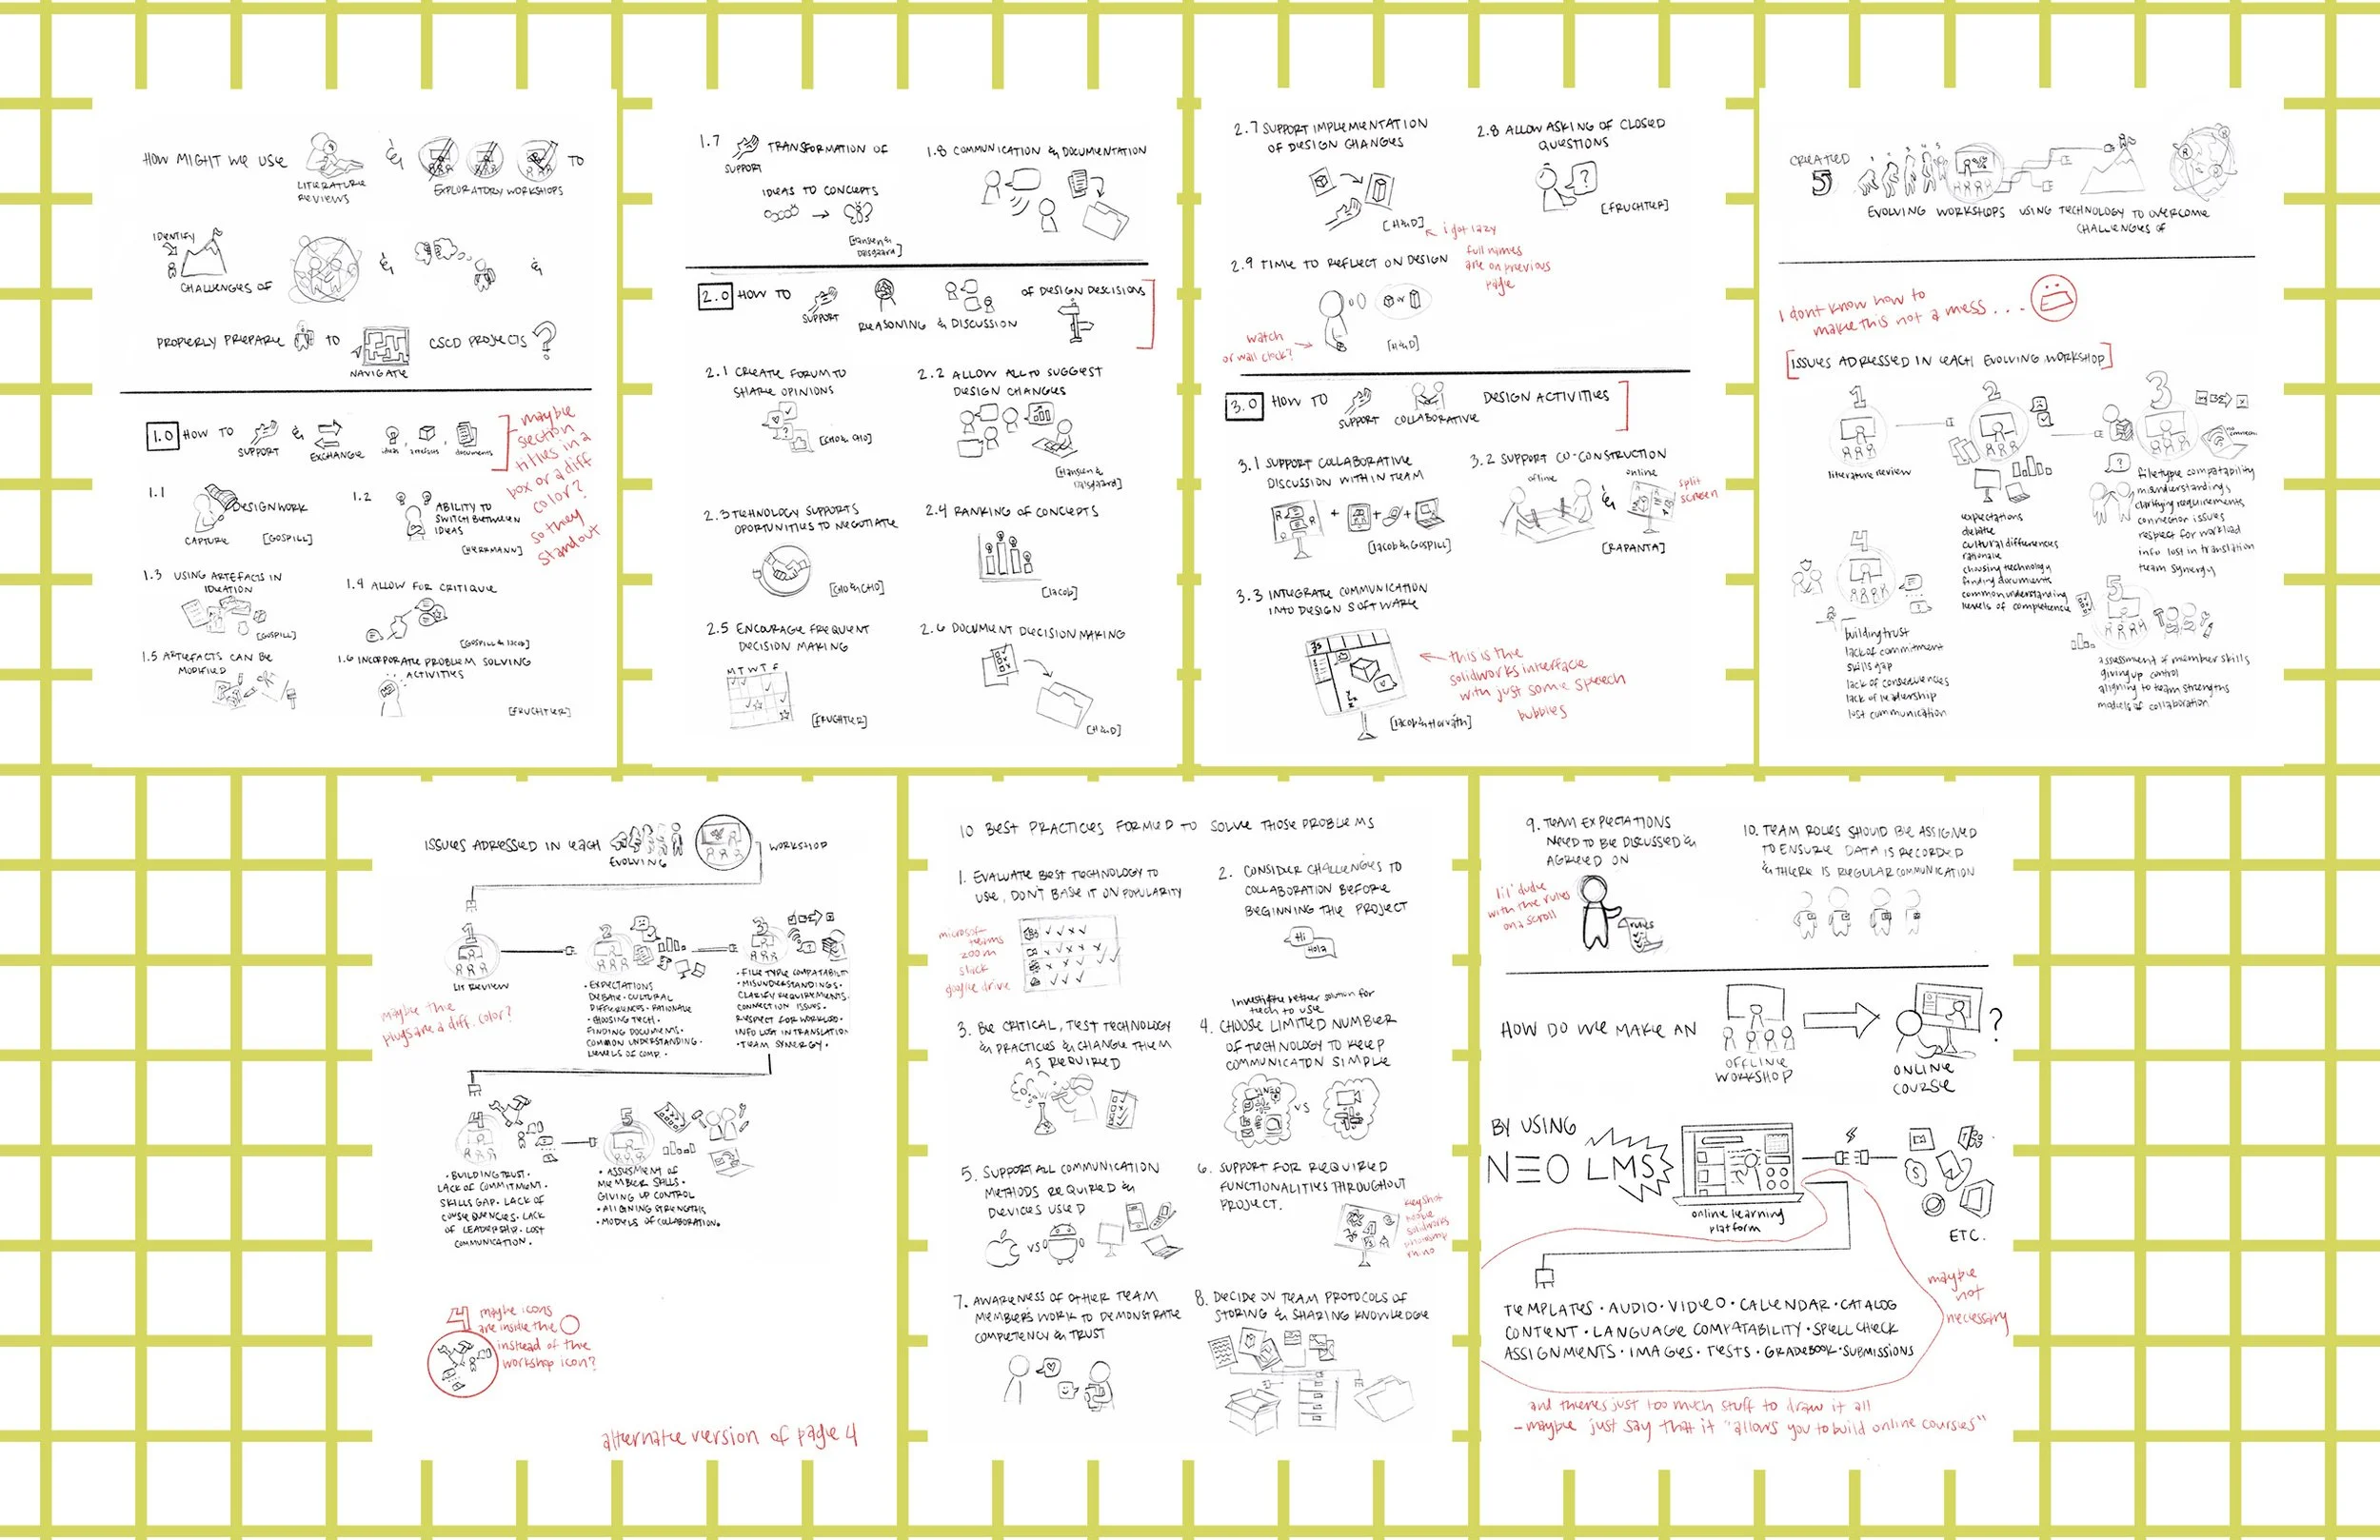 HOW MIGHT WE USE
LITERATURE
REVIEWS
&
EXPLORATORY WORKSHOPS
TO
IDENTIFY
CHALLENGES OF
&
&
PROPERLY PREPARE
TO
NAVIGATE
CSCD PROJECTS
?
1.0 HOW TO
SUPPORT
&
EXCHANGE
ideas
artefacts
documents
maybe
section
titles in a
box or a diff
color?
so they
standout
1.1
DESIGN WORK
CAPTURE
[GOSPILL]
1.2
ABILITY TO
SWITCH BETWEEN
IDEAS
[HERRMANN]
1.3 USING ARTEFACTS IN
IDEATION
[GOSPILL]
1.4 ALLOW FOR CRITIQUE
[GOSPILL & Iacob]
1.5 ARTEFACTS CAN BE
MODIFIED
1.6 INCORPORATE PROBLEM SOLVING
ACTIVITIES
[FRUCHTER]
1.7
SUPPORT
TRANSFORMATION OF
IDEAS TO CONCEPTS
[Hansen &
Dalsgaard]
1.8 COMMUNICATION & DOCUMENTATION
2.0 HOW TO
SUPPORT
REASONING & DISCUSSION
OF DESIGN DESCISIONS
2.1 CREATE FORUM TO
SHARE OPINIONS
[CHO & CHO]
2.2 ALLOW ALL TO SUGGEST
DESIGN CHANGES
[Hansen &
Dalsgaard]
2.3 TECHNOLOGY SUPPORTS
OPORTUNITIES TO NEGOTIATE
[CHO & CHO]
2.4 RANKING OF CONCEPTS
[Iacob]
2.5 ENCOURAGE FREQUENT
DECISION MAKING
M T W T F
[FRUCHTER]
2.6 DOCUMENT DECISION MAKING
[H & D]
2.7 SUPPORT IMPLEMENTATION
OF DESIGN CHANGES
[H & D]
i got lazy
full names
are on previous
page
2.8 ALLOW ASKING OF CLOSED
QUESTIONS
?
[FRUCHTER]
2.9 TIME TO REFLECT ON DESIGN
or
watch
or wall clock?
[H & D]
3.0 HOW TO
SUPPORT
COLLABORATIVE
DESIGN ACTIVITIES
3.1 SUPPORT COLLABORATIVE
DISCUSSION WITHIN TEAM
[Iacob & GOSPILL]
3.2 SUPPORT CO-CONSTRUCTION
offline
&
online
split
screen
[RAPANTA]
3.3 INTEGRATE COMMUNICATION
INTO DESIGN SOFTWARE
this is the
solidworks interface
with just some speech
bubbles
[Iacob & Horváth]
CREATED
5
EVOLVING WORKSHOPS USING TECHNOLOGY TO OVERCOME
CHALLENGES OF
I dont know how to
make this not a mess...
[ISSUES ADRESSED IN EACH EVOLVING WORKSHOP]
1
literature review
2
expectations
debate
cultural differences
rationale
choosing technology
finding documents
common understanding
levels of competence
3
file type compatability
misunderstandings
clarifying requirements
connection issues
respect for workload
info lost in translation
team synergy
4
building trust
lack of commitment
skills gap
lack of consequences
lack of leadership
lost communication
5
assessment of member skills
giving up control
aligning to team strengths
models of collaboration
ISSUES ADRESSED IN EACH
EVOLVING
WORKSHOP
1
LIT REVIEW
2
• EXPECTATIONS
DEBATE • CULTURAL
DIFFERENCES • RATIONALE
• CHOOSING TECH •
FINDING DOCUMENTS •
COMMON UNDERSTANDING •
LEVELS OF COMP. •
3
• FILE TYPE COMPATABILITY
• MISUNDERSTANDINGS •
CLARIFY REQUIREMENTS •
CONNECTION ISSUES •
RESPECT FOR WORKLOAD •
INFO LOST IN TRANSLATION
• TEAM SYNERGY •
maybe the
plugs are a diff. color?
4
• BUILDING TRUST •
LACK OF COMMITMENT •
SKILLS GAP • LACK OF
CONSEQUENCIES • LACK
OF LEADERSHIP • LOST
COMMUNICATION •
5
• ASSESMENT OF
MEMBER SKILLS •
GIVING UP CONTROL
• ALIGNING STRENGTHS
• MODELS OF COLLABORATION •
4
maybe icons
are inside the
instead of the
workshop icon?
alternate version of page 4
10 BEST PRACTICES FORMED TO SOLVE THOSE PROBLEMS
1. EVALUATE BEST TECHNOLOGY TO
USE, DON'T BASE IT ON POPULARITY
microsoft
teams
zoom
slack
google drive
2. CONSIDER CHALLENGES TO
COLLABORATION BEFORE
BEGINNING THE PROJECT
Hi
Hola
3. BE CRITICAL, TEST TECHNOLOGY
& PRACTICES & CHANGE THEM
AS REQUIRED
tech to use
4. CHOOSE LIMITED NUMBER
OF TECHNOLOGY TO KEEP
COMMUNICATON SIMPLE
VS
5. SUPPORT ALL COMMUNICATION
METHODS REQUIRED &
DEVICES USED
VS
6. SUPPORT FOR REQUIRED
FUNCTIONALITIES THROUGHOUT
PROJECT.
keyshot
adobe
solidworks
rhino
7. AWARENESS OF OTHER TEAM
MEMBERS WORK TO DEMONSTRATE
COMPETENCY & TRUST
8. DECIDE ON TEAM PROTOCOLS OF
STORING & SHARING KNOWLEDGE
9. TEAM EXPECTATIONS
NEED TO BE DISCUSSED &
AGREED ON
lil' dude
with the rules
on a scroll
rules
10. TEAM ROLES SHOULD BE ASSIGNED
TO ENSURE DATA IS RECORDED
& THERE IS REGULAR COMMUNICATION
HOW DO WE MAKE AN
OFFLINE
WORKSHOP
ONLINE
COURSE
?
BY USING
NEO LMS
online learning
platform
ETC.
TEMPLATES • AUDIO • VIDEO • CALENDAR • CATALOG
CONTENT • LANGUAGE COMPATABILITY • SPELL CHECK
ASSIGNMENTS • IMAGES • TESTS • GRADEBOOK • SUBMISSIONS
maybe
not
necessary
and theres just too much stuff to draw it all
- maybe just say that it "allows you to build online courses"